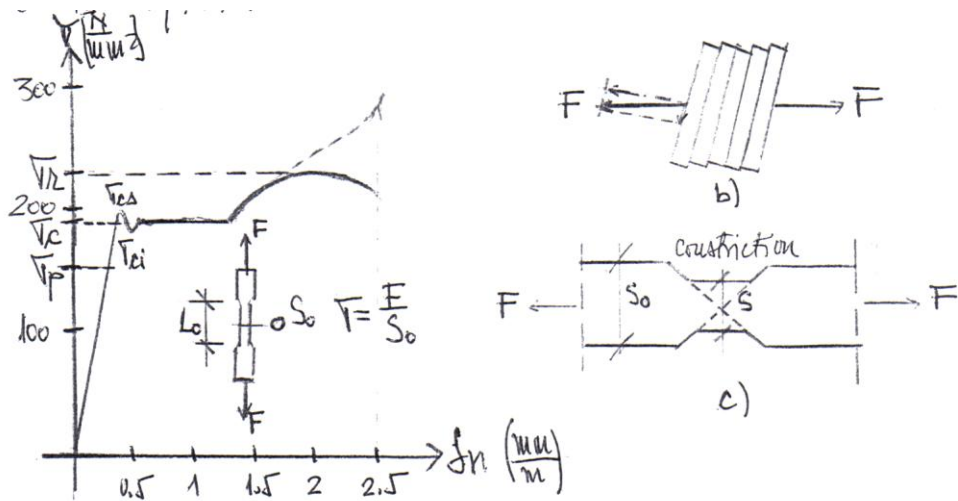 [N/mm²]
300
σr
σcs
200
σc
σci
σp
100
F
L₀
S₀
σ = F/S₀
F
0.5
1
1.5
2
2.5
(mm/m)
F
F
b)
constriction
F
S₀
S
F
c)